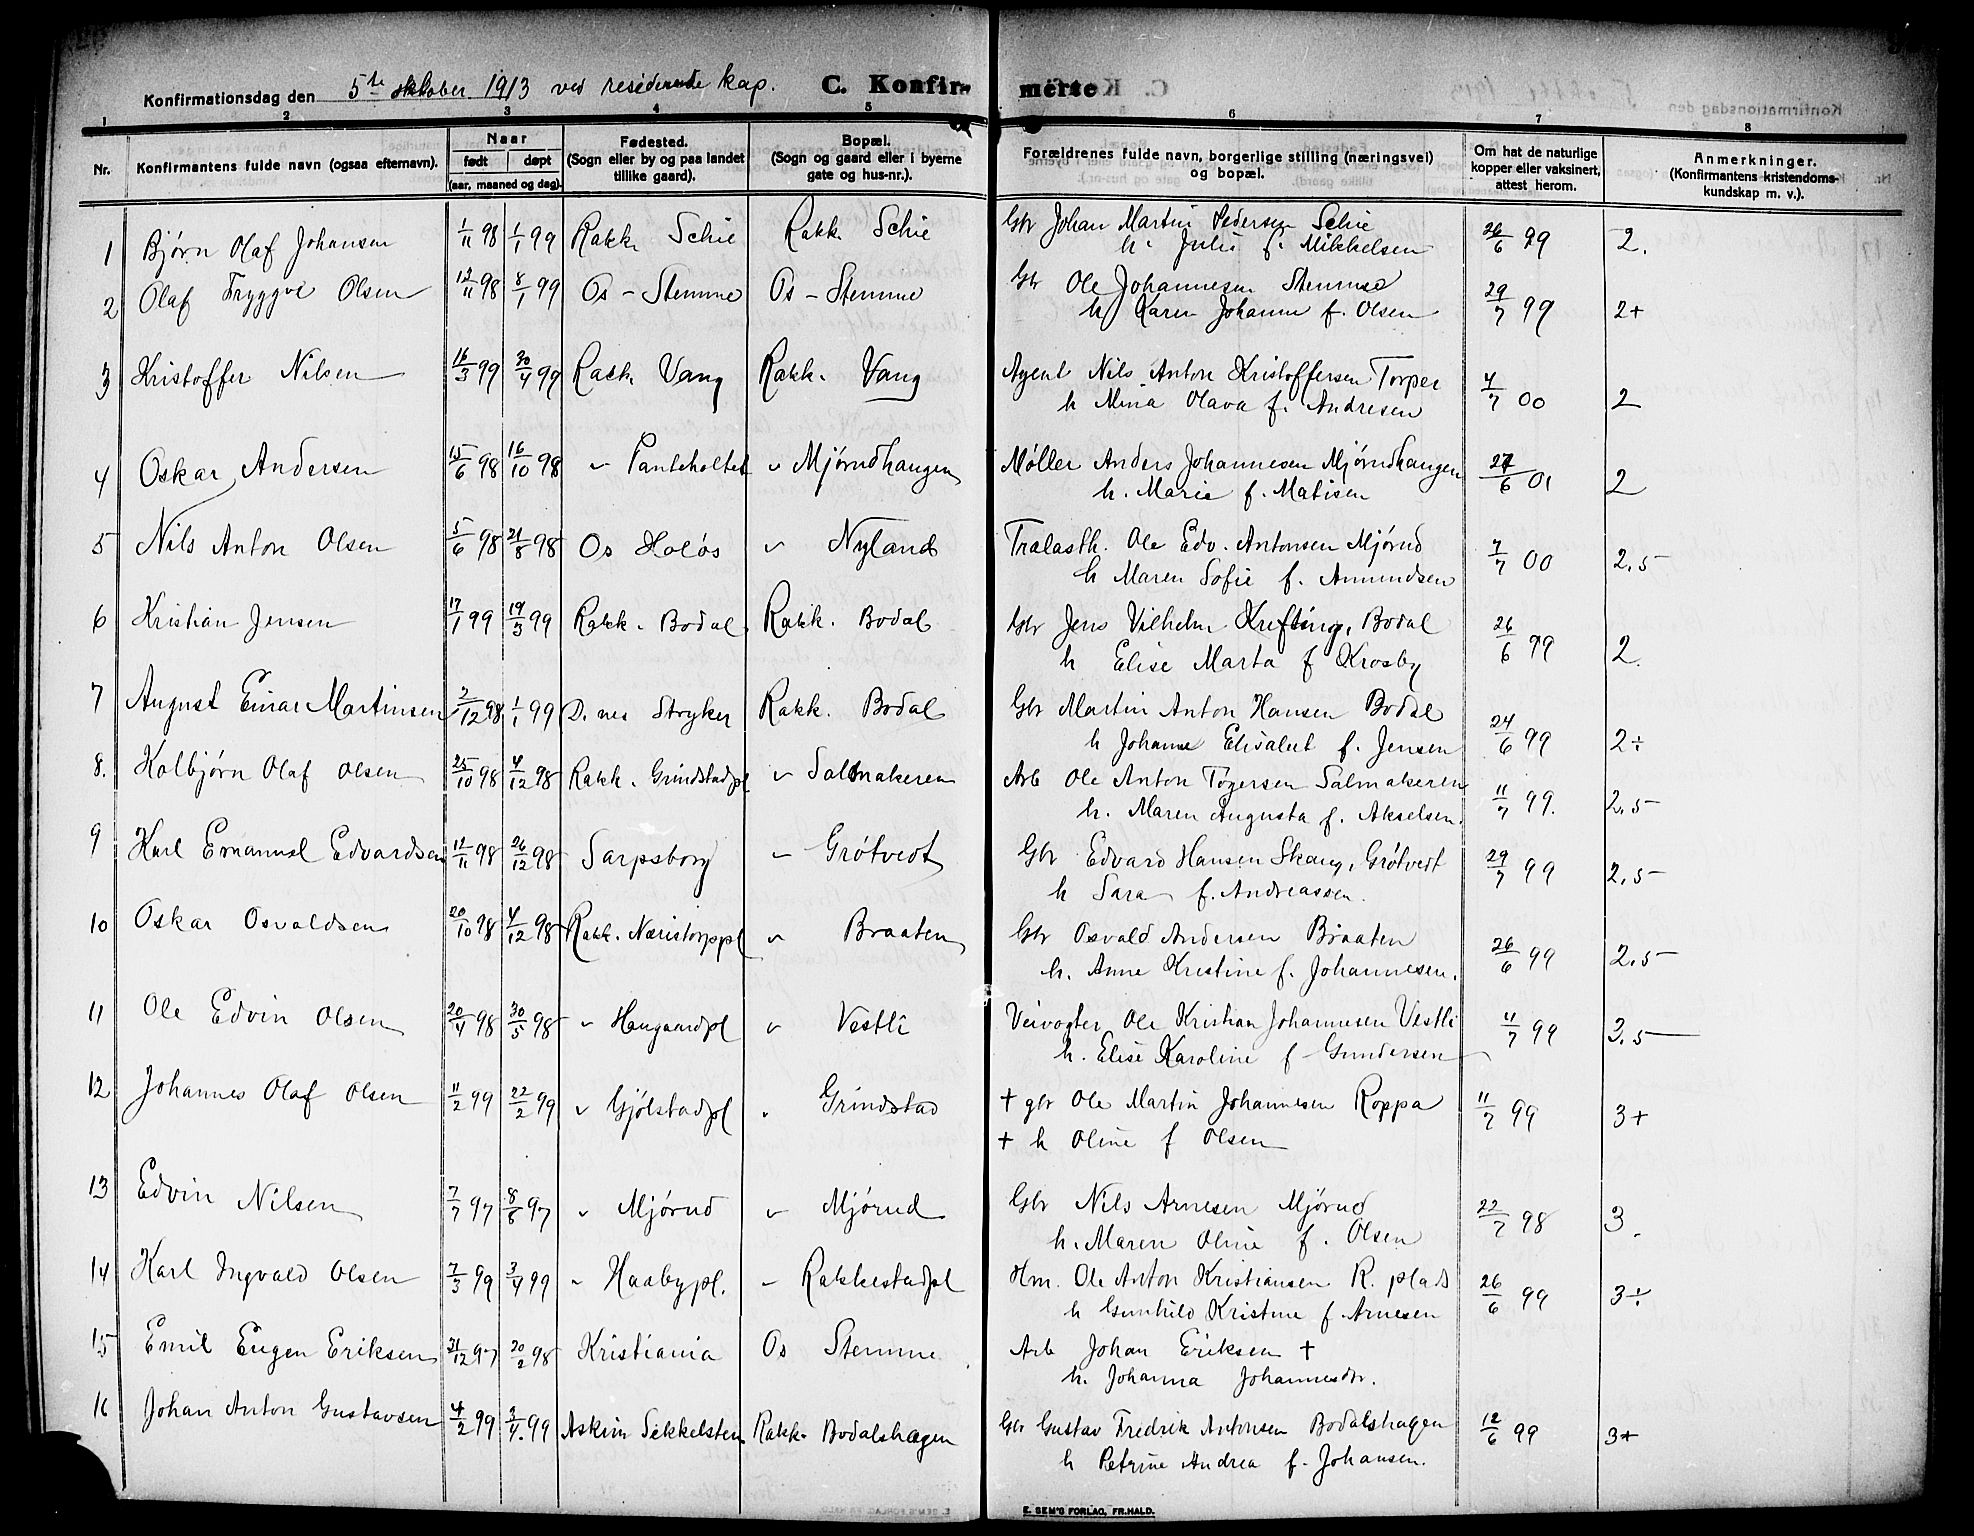 Konfirmationsdag den 5te oktober 1913 ved residerende kap. C. Konfir- merte
1 2 3 4 5 6 7 8
Nr. Konfirmantens fulde navn (ogsaa efternavn). Naar født døpt (aar, maaned og dag). Fødested. (Sogn eller by og paa landet tillike gaard). Bopæl. (Sogn og gaard eller i byerne gate og hus-nr.). Forældrenes fulde navn, borgerlige stilling (næringsvei) og bopæl. Om hat de naturlige kopper eller vaksinert, attest herom. Anmerkninger. (Konfirmantens kristendoms- kundskap m. v.).
1 Bjørn Olaf Johansen 1/11 98 1/1 99 Rakk. Schie Rakk. Schie Gbr Johan Martin Pedersen Schie 26/6 99 2.
h. Julie f. Mikkelsen
2 Olaf Tryggve Olsen 12/11 98 8/1 99 Os - Stemme Os - Stemme Gbr Ole Johannesen Stemme 29/7 99 2+
h Karen Johanne f. Olsen
3 Kristoffer Nilsen 16/3 99 30/4 99 Rakk. Vang Rakk. Vang Agent Nils Anton Kristoffersen Torper 4/7 00 2
h Mina Olava f. Andresen
4 Oskar Andersen 15/6 98 16/10 98 " Tanteholtet " Mjørudhaugen Møller Anders Johannesen Mjørudhaugen 27/6 01 2
h. Marie f. Matisen
5 Nils Anton Olsen 5/6 98 21/8 98 Os Holøs " Nyland Trælasth. Ole Edv. Antonsen Mjørud 7/7 00 2,5-
h Maren Sofie f. Amundsen
6 Kristian Jensen 17/1 99 19/3 99 Rakk. Bodal Rakk. Bodal Gbr Jens Vilhelm Krefting, Bodal 26/6 99 2.
h Elise Marta f Krosby
7 August Einar Martinsen 2/12 98 1/1 99 D. nes Stryker Rakk. Bodal Gbr Martin Anton Hansen Bodal 24/6 99 2÷
h Johanne Elisabet f. Jensen
8. Kolbjørn Olaf Olsen 25/10 98 4/12 98 Rakk. Grindstadpl " Salmakeren Arb Ole Anton Tøgersen Salmakeren 11/7 99. 2,5-
h. Maren Augusta f. Akselsen.
9 Karl Emanuel Edvardsen 12/11 98 26/12 98 Sarpsborg " Grøtvedt Gbr Edvard Hansen Skaug, Grøtvedt 29/7 99 2,5-
h Sara f. Andreassen.
10 Oskar Osvaldsen 20/10 98 4/12 98 Rakk. Næristorppl " Braaten Gbr Osvald Andersen Braaten 26/6 99 2,5-
h. Anne Kristine f. Johannesen.
11 Ole Edvin Olsen 20/4 98 30/5 98 " Haugaardpl " Vestli Veivogter Ole Kristian Johannesen Vestli 11/7 99 3,5-
h. Elise Karoline f Gundersen
12 Johannes Olaf Olsen 11/2 99 22/2 99 " Gjølstadpl " Grindstad + gbr Ole Martin Johannesen Roppa 11/7 99 3+
+ h Oline f Olsen
13 Edvin Nilsen 7/7 97 8/8 97 " Mjørud " Mjørud Gbr Nils Arnesen Mjørud 22/7 98 3.
h. Maren Oline f. Olsen
14 Karl Ingvald Olsen 7/3 99 3/4 99 " Haabypl. " Rakkestadpl Hm. Ole Anton Kristiansen R. plads 26/6 99 3÷
h Gunhild Kristine f Arnesen
15 Emil Eugen Eriksen 31/12 97 20/2 98 Kristiania Os Stemme Arb Johan Eriksen +
h. Johanna Johannesdtr.
16 Johan Anton Gustavsen 4/2 99 3/4 99 Askim Sekkelsten Rakk. Bodalshagen Gbr Gustav Fredrik Antonsen Bodalshagen 12/6 99 3+
h Petrine Andrea f. Johansen.
E. SEM'S FORLAG, FR.HALD.